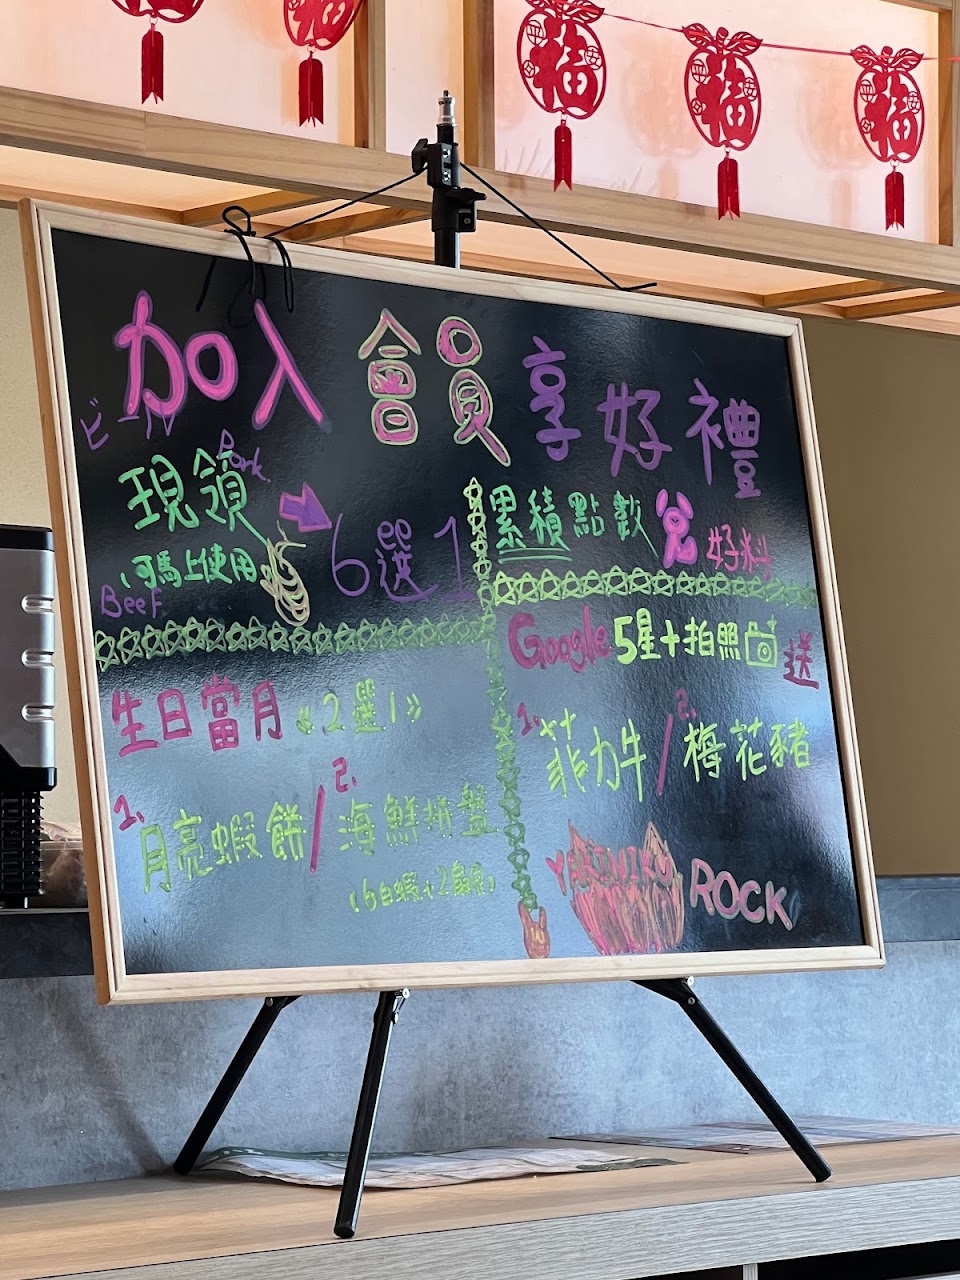 福
福
福
加入會員享好禮
ビール
Pork.
現領
6選1
(可馬上使用
Beef
累積點數
兌
好料
Google 5星+拍照
送
1. 菲力牛/2. 梅花豬
生日當月《2選1》
1. 月亮蝦餅/2. 海鮮拼盤
YAKINIKU ROCK